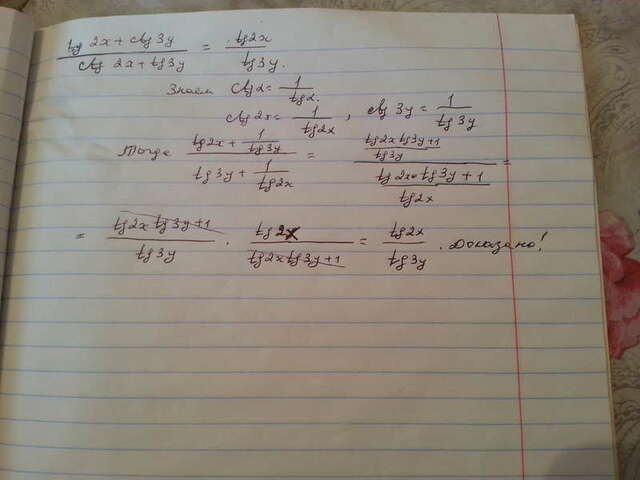 (tg 2x + ctg 3y)/(ctg 2x + tg 3y) = tg2x/tg3y.
Знаем ctg α = 1/tg α.
ctg 2x = 1/tg2x, ctg 3y = 1/tg3y
Тогда (tg2x + 1/tg3y)/(tg3y + 1/tg2x) = ((tg2x tg3y+1)/tg3y)/((tg2x tg3y+1)/tg2x) =
= (tg2x tg3y+1)/tg3y · tg2x/(tg2x tg3y+1) = tg2x/tg3y. Доказано!